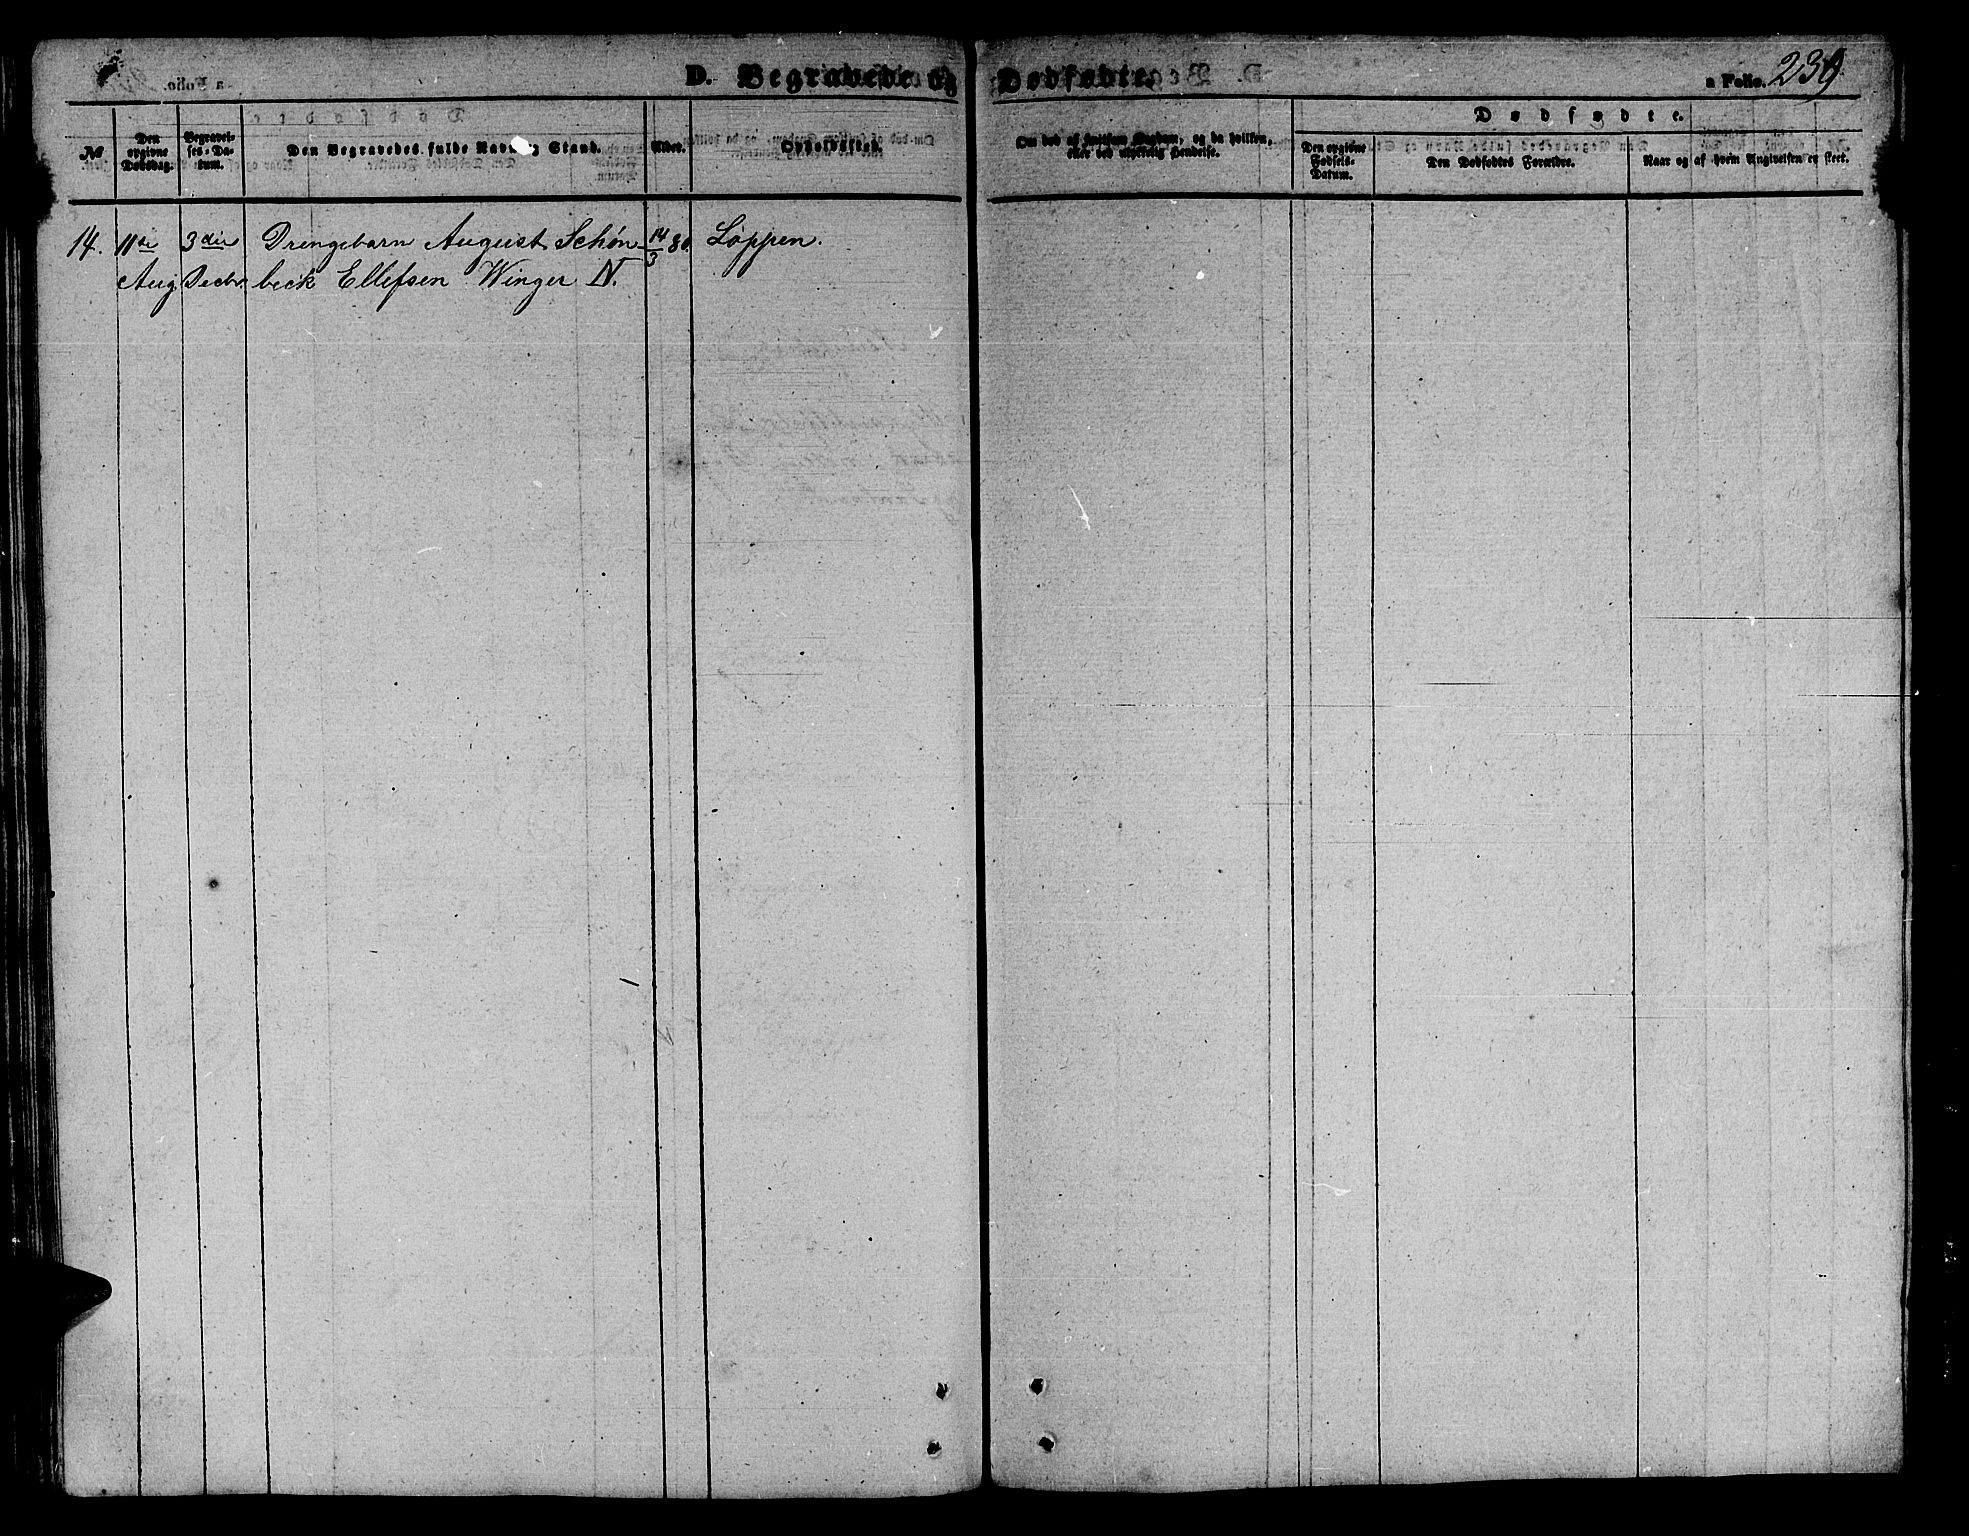 D. Begravede og Dødfødte. a Folio. 239
Dødfødte.
№ Den opgivne Dødsdag. Begravelses-Datum. Den Begravedes fulde Navn og Stand. Alder. Opholdssted. Om død af hvilken Sygdom, og da hvilken, eller ved ulykkelig Hendelse. Den opgivne Fødsels-Datum. Den Dødfødtes Forældre. Naar og af hvem Angivelsen er skeet.
14. 11te 3die Drengebarn August Schøn- 14/3 80. Loppen.
Aug. Decbr. beck Ellefsen Winger N.